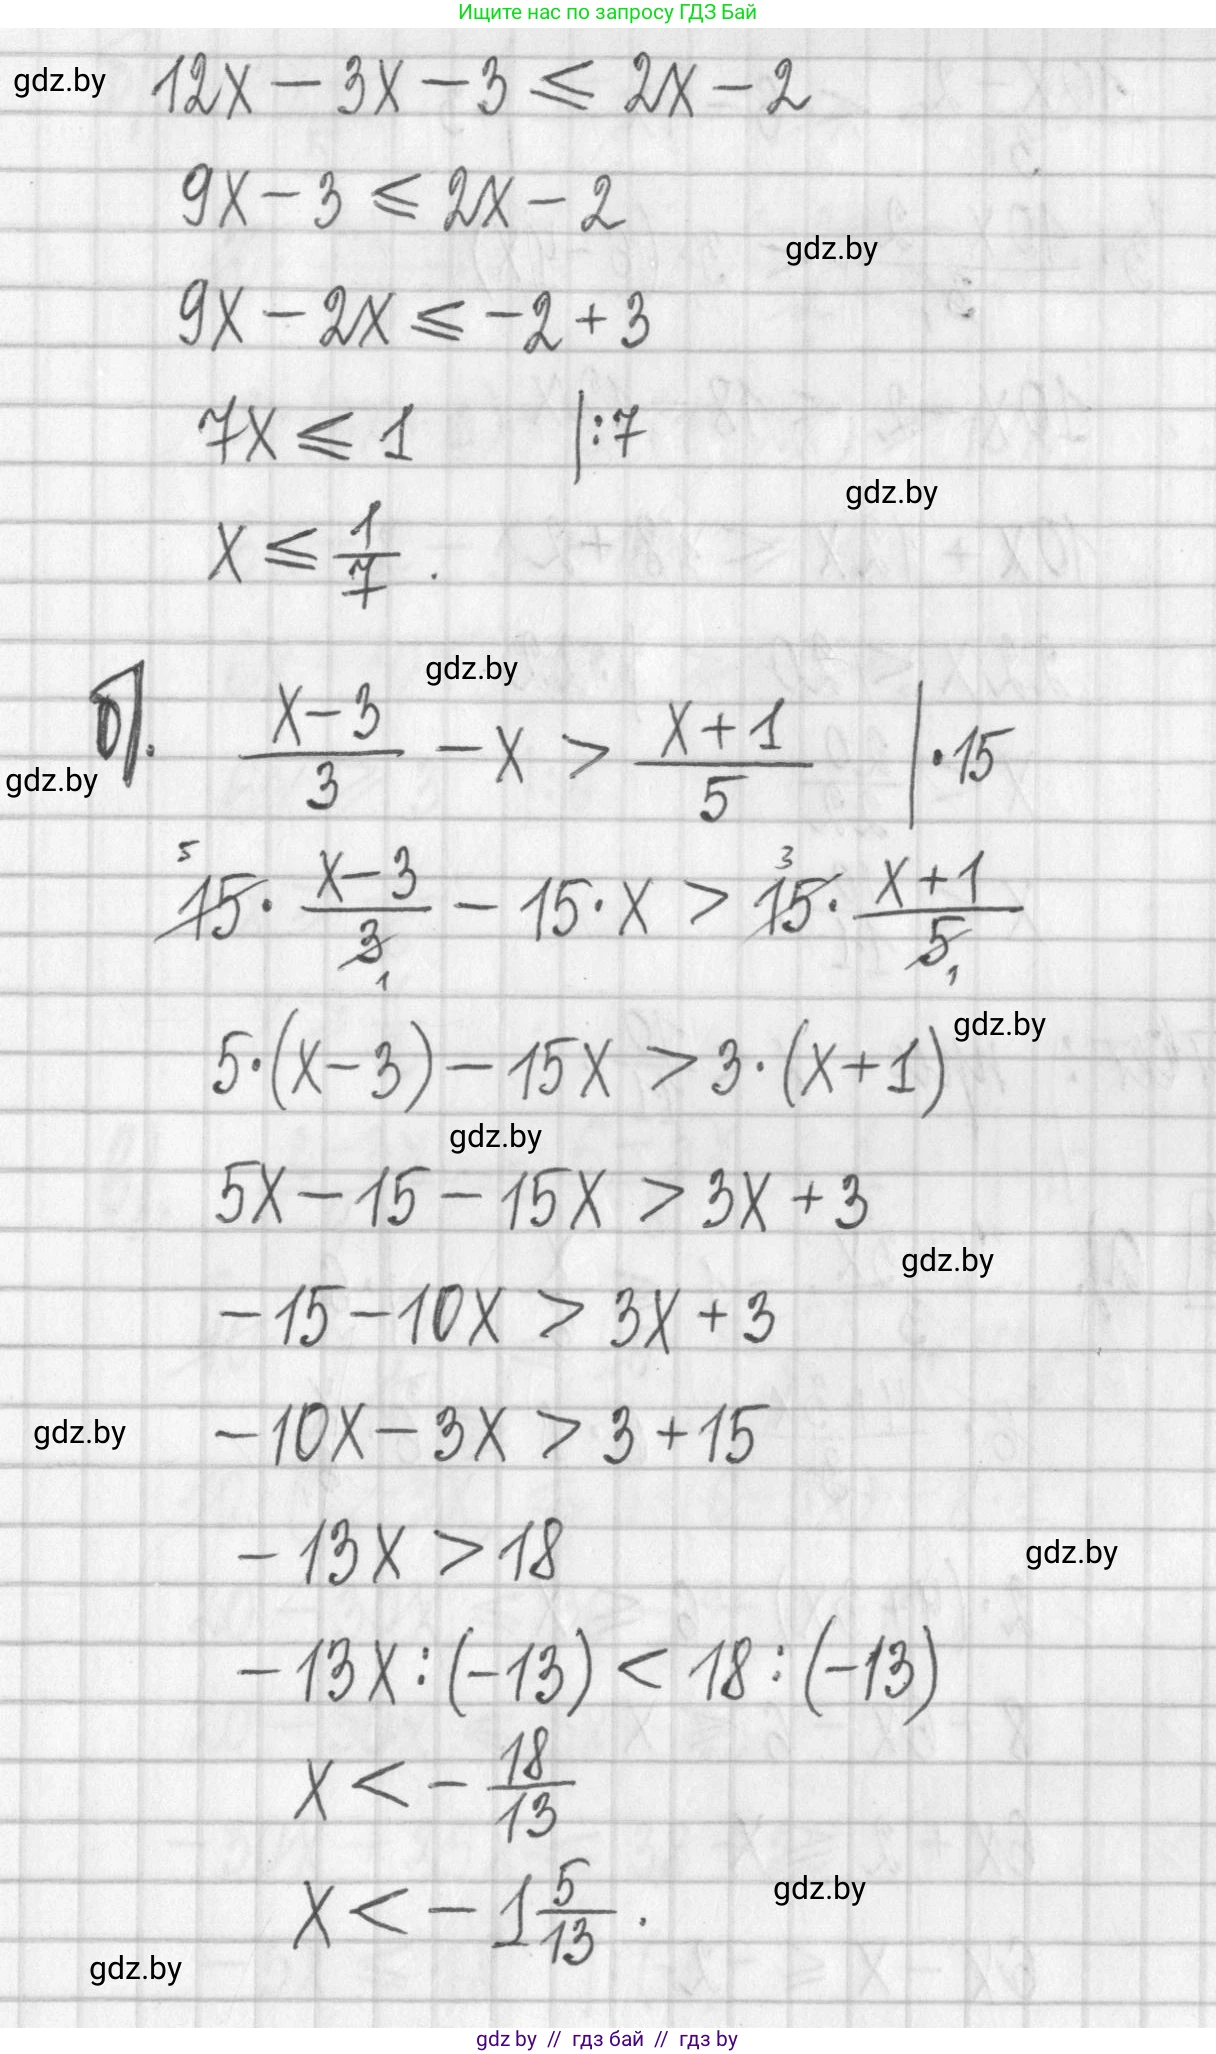 Ищите нас по запросу ГДЗ Бай
gdz.by
12x − 3x − 3 ⩽ 2x − 2
9x − 3 ⩽ 2x − 2
gdz.by
9x − 2x ⩽ −2 + 3
7x ⩽ 1 |:7
gdz.by
x ⩽ 1/7.
gdz.by
б). (x−3)/3 − x > (x+1)/5 |·15
gdz.by
5 3
15 · (x−3)/3 − 15·x > 15 · (x+1)/5
1 1
gdz.by
5·(x−3) − 15x > 3·(x+1)
gdz.by
5x − 15 − 15x > 3x + 3
gdz.by
−15 − 10x > 3x + 3
gdz.by
−10x − 3x > 3 + 15
−13x > 18
gdz.by
−13x : (−13) < 18 : (−13)
x < − 18/13
gdz.by
x < − 1 5/13.
gdz.by
gdz by // гдз бай // гдз by